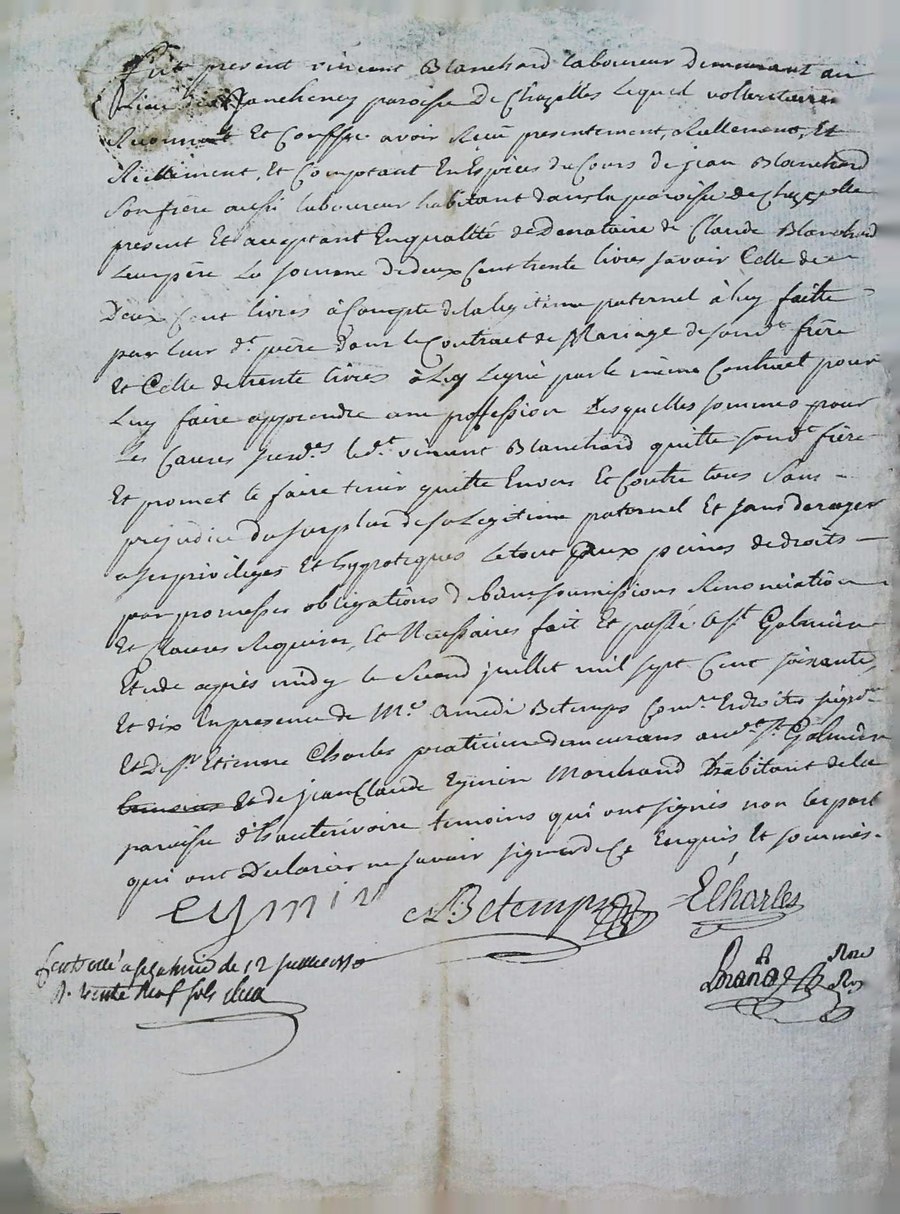 Fut present vincent Blanchard laboureur Demeurant au
Lieu de paroisse De Chazelles lequel vollontairem
Reconnoit Et Confesse avoir Reçu presentement, Et
Reellement, Et Comptant En Espèces du Cours de jean Blanchard
Son frère aussi laboureur habitant dans la paroisse de Chazelle
present Et acceptant En qualité de Donataire de Claude Blanchard
Leur père La somme de deux Cent trente livres savoir Celle de
Deux Cent livres à Compte de la legitime paternel à luy faitte
par leur d.t père dans le Contrait de Mariage de son d.t frère
Et Celle de trente livres à luy par le même Contract pour
Luy faire apprendre une profession Lesquelles sommes pour
Les Causes susd.es led.t vincent Blanchard quitte son d.t frère
Et promet le faire tenir quitte Envers Et Contre tous Sans
préjudice du surplus de sa Legitime paternel Et sans deroger
a ses privileges Et hypoteques Le tout aux peines de droits
par promesses obligations de biens soumissions Renonciation
Et Clauses Requises, Et Necessaires fait Et passé a S.t Galmier
Etude après midy le Second juillet mil sept Cent soixante
Et dix En presence de M.e amedé Betemps Com.re Endroits
Et De s.r Etienne Charles praticien demeurans aud.t S.t Galmier
Et de jean Claude Eymin Marchand habitant de la
paroisse d'hauterivoire temoins qui ont signés non les parti
qui ont Declarées ne savoir signer de Ce Enquis Et sommés.
eymin Betemps ECharles
a S.t galmier le 12 juillet 1770
R. trente neuf sols